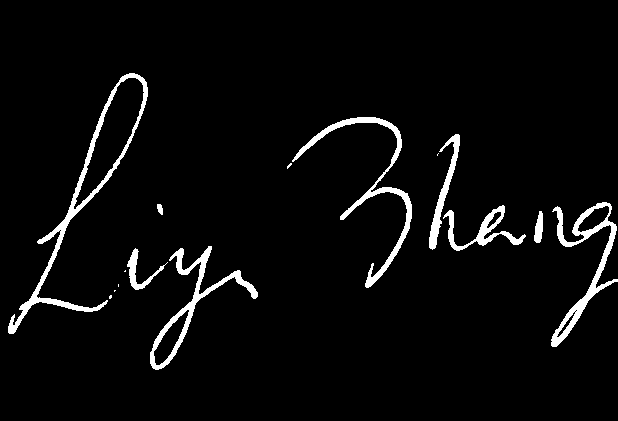 Liya Zhang